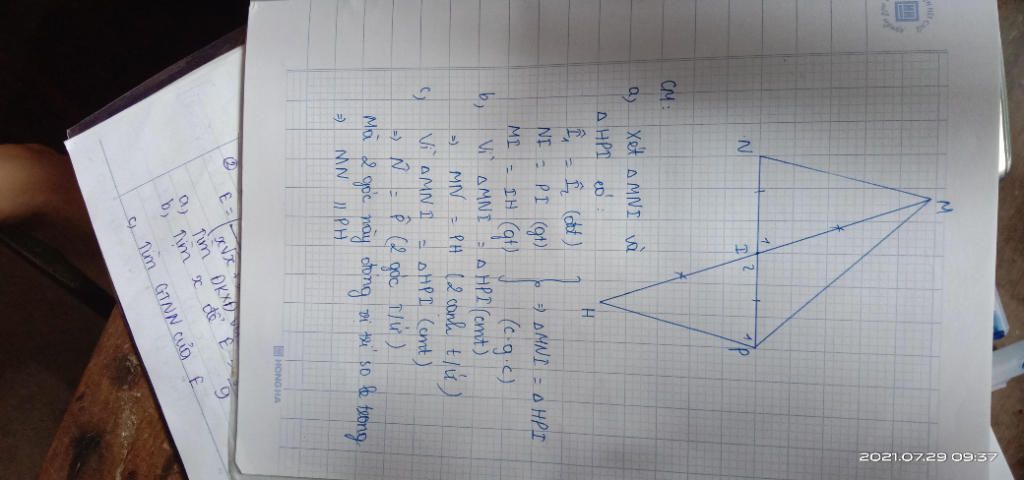 M
N
I
1
2
1
P
H
CM:
a) Xét △MNI và
△HPI có:
Î₁ = Î₂ (đđ)
NI = PI (gt) } => △MNI = △HPI
MI = IH (gt) (c.g.c)
b, Vì △MNI = △HPI (cmt)
=> MN = PH (2 cạnh t/ứ)
c, Vì △MNI = △HPI (cmt)
=> N̂ = P̂ (2 góc t/ứ)
Mà 2 góc này đứng vị trí so le trong
=> MN // PH
HONG HA
② E =
a, Tìm ĐKXĐ
b, Tìm x để E
c, Tìm GTNN của E
2021.07.29 09:37